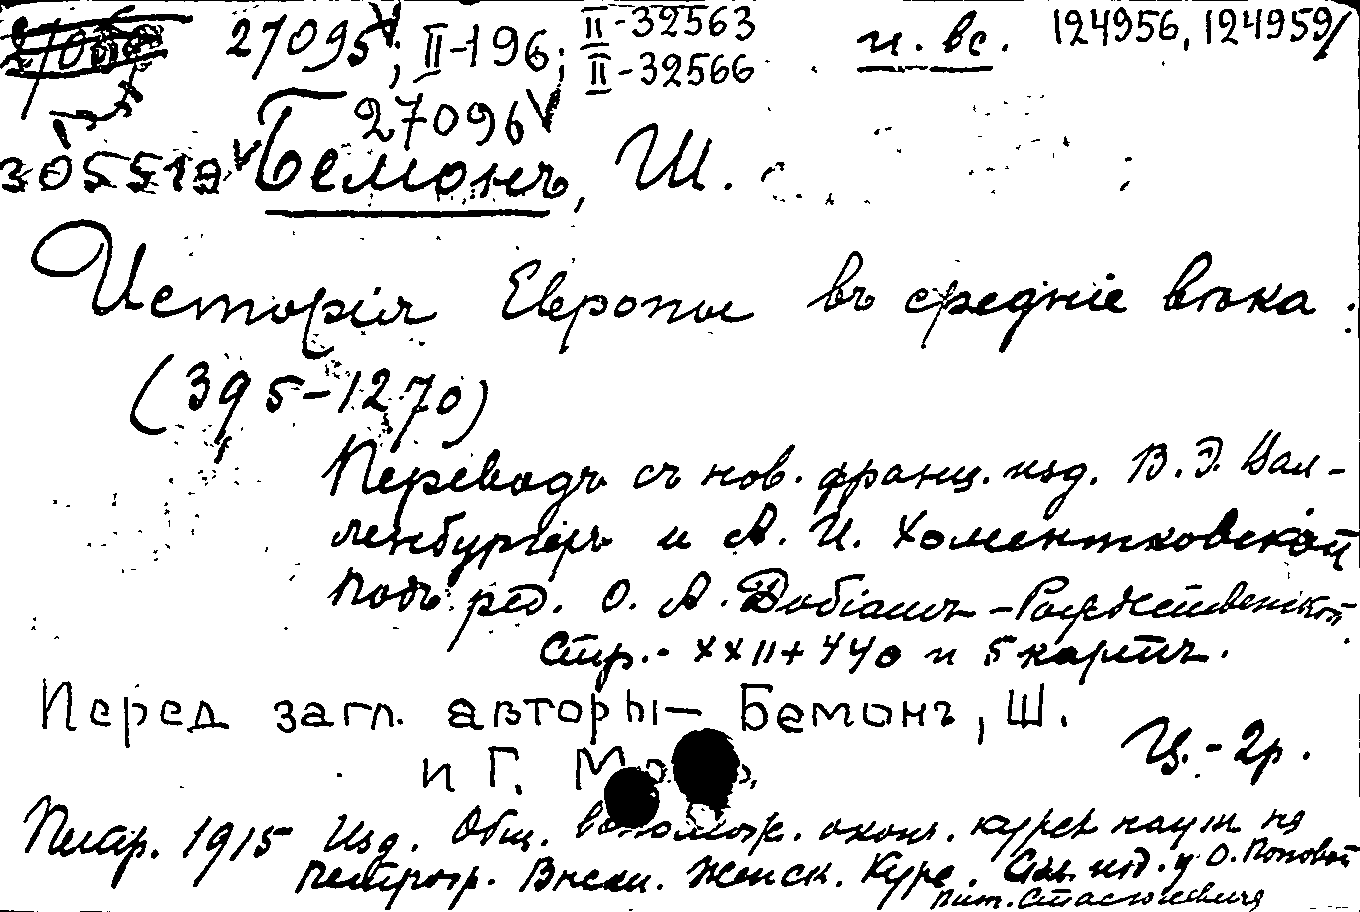 27095; II-196; II-32563 и. вс. 124956, 124959/
II-32566
27096
305519 Бемонъ, Ш.
Исторія Европы въ средніе вѣка:
(395-1270)
Переводъ съ нов. франц. изд. В. Э. Вал-
ленбургеръ и А. И. Хоментковской
подъ ред. О. А. Добіашъ-Рождественской
Стр.- XXII+440 и 5 картъ.
Перед загл. авторы- Бемонъ, Ш.
и Г.
Ц.-2р.
Петр. 1915 Изд. Общ. вспомож. оконч. курсъ наукъ на
Петрогр. Высш. Женск. Курс. изд. у О. Поповой
тип. Стасюлевича